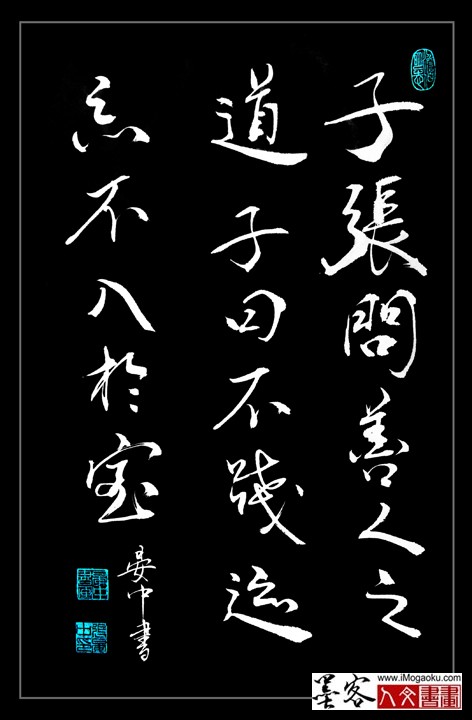 子張問善人之
道子曰不踐迹
亦不入於室
晏中書
墨客
www.iMogaoku.com
人文書畫